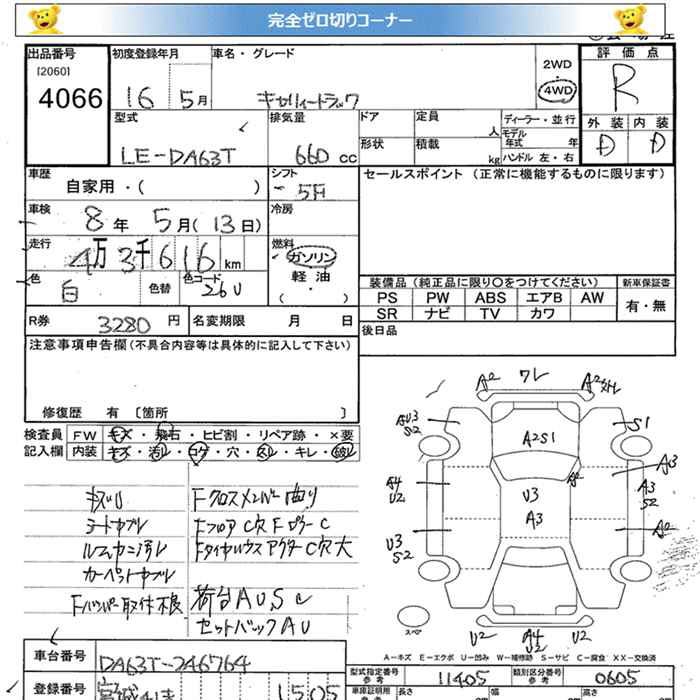 完全ゼロ切りコーナー
出品番号 初度登録年月 車名・グレード 2WD 評価点
[2060]
4066 16 5月 キャリィートラック 4WD R
型式 排気量 ドア 定員 人 ディーラー・並行 外装 内装
LE-DA63T 660 cc 形状 積載 kg モデル年式 年 D D
ハンドル 左・右
車歴 自家用・( ) シフト 5F セールスポイント(正常に機能するものに限ります)
車検 8年 5月(13日) 冷房
走行 4万3千616km 燃料 ガソリン
軽油
( )
色 白 色替 色コード 26U 装備品(純正品に限り〇をつけてください) 新車保証書
PS PW ABS エアB AW 有・無
SR ナビ TV カワ
R券 3280円 名変期限 月 日 後日品
注意事項申告欄(不具合内容等は具体的に記入して下さい)
修復歴 有 [箇所 ]
検査員 FW キズ・飛石・ヒビ割・リペア跡・×要
記入欄 内装 キズ・汚レ・コゲ・穴・スレ・キレ・破レ
A2 ワレ A2
AU3 S2 S1
A2S1
A4 U2 A2 A3
U3 A3 A3 S2
U3 S2 A2
Fクロスメンバー曲り
シートカブレ FフロアC穴
ルームカニ汚レ FタイヤハウスアウターC穴大
カーペットカブレ
Fバンパー取付不良 荷台AUSC
セットバックAU
スペア U2 A4 U2 U2
A-キズ E-エクボ U-凹み W-補修跡 S-サビ C-腐食 XX-交換済
車台番号 DA63T-246764
型式指定番号 参考 11405 類別区分番号 参考 0605
登録番号 宮城41き 1505 車庫証明用 長さ 幅 高さ